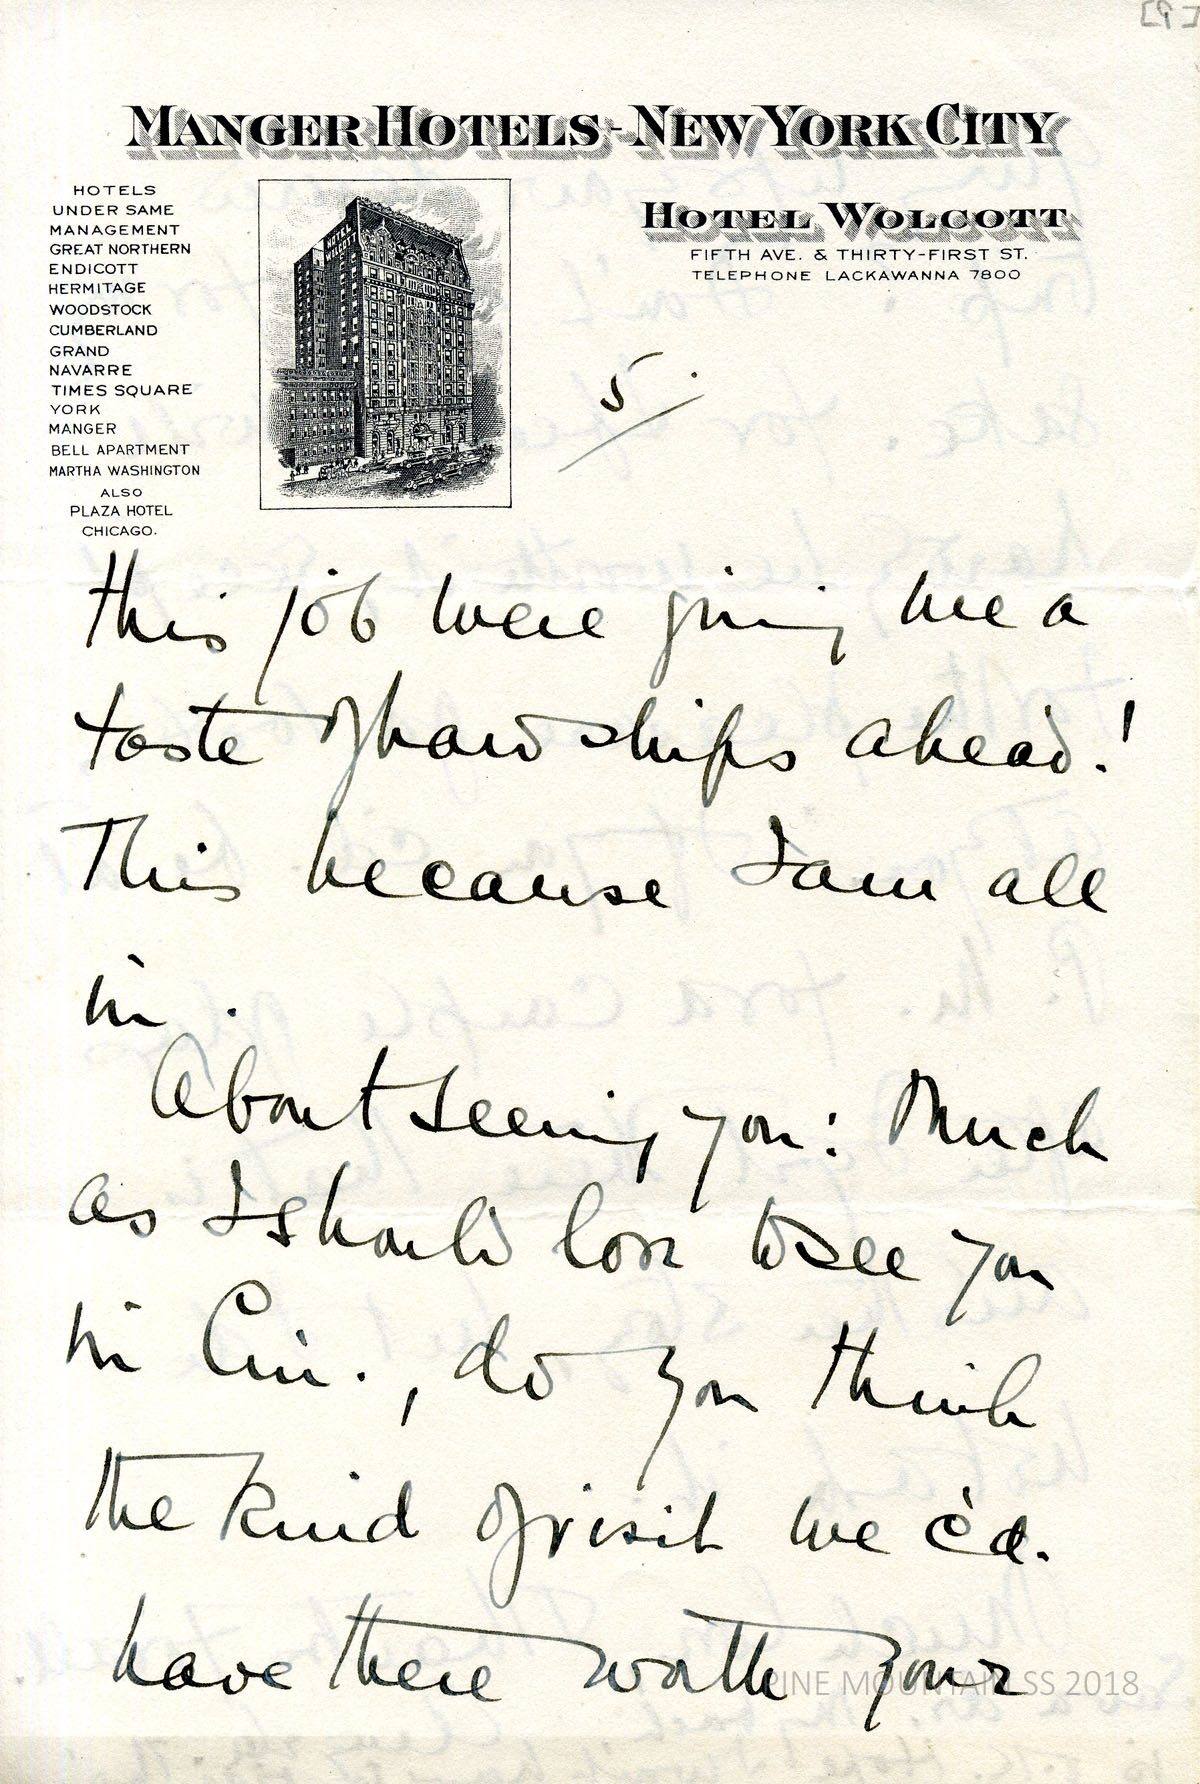 MANGER HOTELS - NEW YORK CITY
HOTELS
UNDER SAME
MANAGEMENT
GREAT NORTHERN
ENDICOTT
HERMITAGE
WOODSTOCK
CUMBERLAND
GRAND
NAVARRE
TIMES SQUARE
YORK
MANGER
BELL APARTMENT
MARTHA WASHINGTON
ALSO
PLAZA HOTEL
CHICAGO.
HOTEL WOLCOTT
HOTEL WOLCOTT
FIFTH AVE. & THIRTY-FIRST ST.
TELEPHONE LACKAWANNA 7800
5/
this job were giving me a
taste of hardships ahead!
This because I am all
in.
About seeing you: Much
as I should love to see you
in Cin., do you think
the kind of visit we c'd.
have there worth your
PINE MOUNTAIN SS 2018